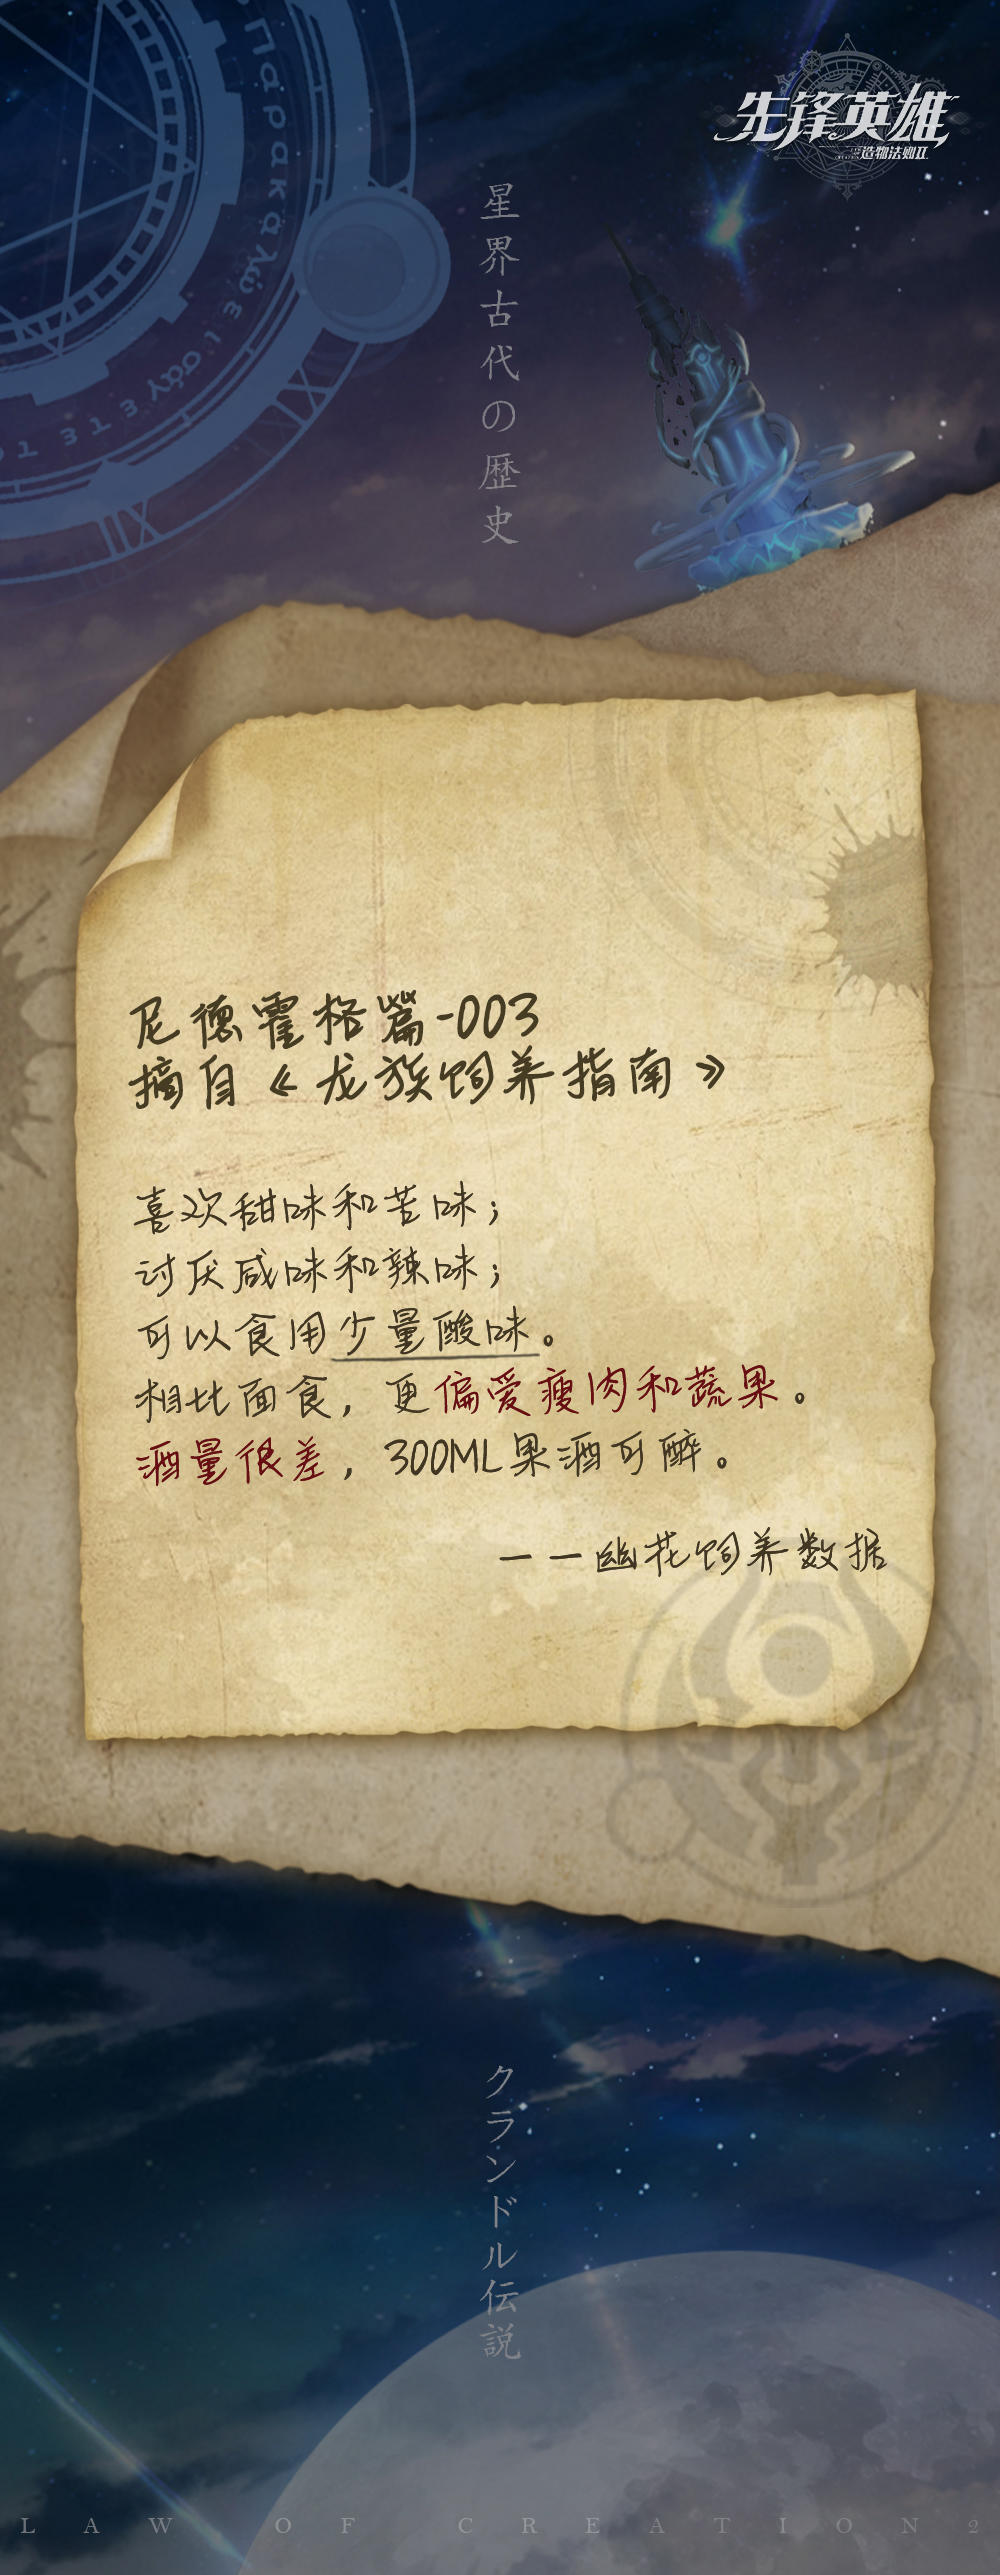 先锋英雄
造物法则II
星界古代の歴史
παρακαλώ εισάγετε τετ
尼德霍格篇-003
摘自《龙族饲养指南》
喜欢甜味和苦味；
讨厌咸味和辣味；
可以食用少量酸味。
相比面食，更偏爱瘦肉和蔬果。
酒量很差，300ML果酒可醉。
——幽花饲养数据
クランドル伝説
LAW OF CREATION2